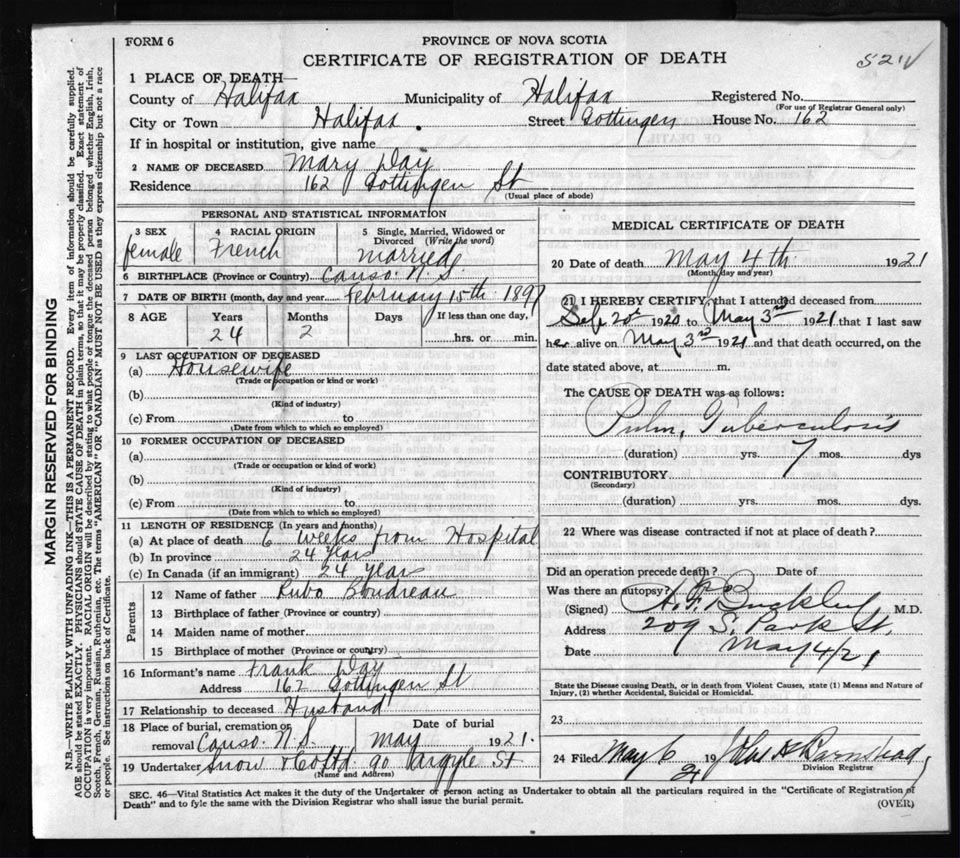 FORM 6
PROVINCE OF NOVA SCOTIA
CERTIFICATE OF REGISTRATION OF DEATH
521
1 PLACE OF DEATH—
County of Halifax Municipality of Halifax Registered No.
(For use of Registrar General only)
City or Town Halifax. Street Gottingen House No. 162
If in hospital or institution, give name
2 NAME OF DECEASED Mary Day
Residence 162 Gottingen St
(Usual place of abode)
PERSONAL AND STATISTICAL INFORMATION
3 SEX female
4 RACIAL ORIGIN French
5 Single, Married, Widowed or Divorced (Write the word) married
6 BIRTHPLACE (Province or Country) Canso. N.S.
7 DATE OF BIRTH (month, day and year) February 15th 1897
8 AGE Years Months Days If less than one day,
24 2 hrs. or min.
9 LAST OCCUPATION OF DECEASED
(a) Housewife
(Trade or occupation or kind or work)
(b)
(Kind of industry)
(c) From to
(Date from which to which so employed)
10 FORMER OCCUPATION OF DECEASED
(a)
(Trade or occupation or kind of work)
(b)
(Kind of industry)
(c) From to
(Date from which to which so employed)
11 LENGTH OF RESIDENCE (In years and months)
(a) At place of death 6 weeks from Hospital
(b) In province 24 years
(c) In Canada (if an immigrant) 24 years
Parents
12 Name of father Boudreau
13 Birthplace of father (Province or country)
14 Maiden name of mother
15 Birthplace of mother (Province or country)
16 Informant's name Frank Day
Address 162 Gottingen St
17 Relationship to deceased Husband
18 Place of burial, cremation or removal Canso. N.S.
Date of burial May 1921.
19 Undertaker Snow & Co Ltd 90 Argyle St
(Name and Address)
MEDICAL CERTIFICATE OF DEATH
20 Date of death May 4th 1921
(Month, day and year)
21 I HEREBY CERTIFY, that I attended deceased from
1920 to May 3rd 1921 that I last saw
her alive on May 3rd 1921 and that death occurred, on the
date stated above, at m.
The CAUSE OF DEATH was as follows:
Pulm. Tuberculosis
(duration) yrs. 7 mos. dys
CONTRIBUTORY
(Secondary)
(duration) yrs. mos. dys.
22 Where was disease contracted if not at place of death?
Did an operation precede death? Date of
Was there an autopsy?
(Signed) Buckley M.D.
Address 209 S. Park St.
Date May 4/21
State the Disease causing Death, or in death from Violent Causes, state (1) Means and Nature of
Injury, (2) whether Accidental, Suicidal or Homicidal.
23
24 Filed May 6 1921
Division Registrar
SEC. 46—Vital Statistics Act makes it the duty of the Undertaker or person acting as Undertaker to obtain all the particulars required in the "Certificate of Registration of
Death" and to fyle the same with the Division Registrar who shall issue the burial permit.
(OVER)
MARGIN RESERVED FOR BINDING
N.B.—WRITE PLAINLY WITH UNFADING INK—THIS IS A PERMANENT RECORD. Every item of information should be carefully supplied.
AGE should be stated EXACTLY. PHYSICIANS should STATE CAUSE OF DEATH in plain terms, so that it may be properly classified. Exact statement of
OCCUPATION is very important. RACIAL ORIGIN will be described by stating to what people or tongue the deceased person belonged whether English, Irish,
Scotch, French, German, Russian, Ruthenian, etc. The terms "AMERICAN" OR "CANADIAN" MUST NOT BE USED as they express citizenship but not a race
or people. See instructions on back of Certificate.